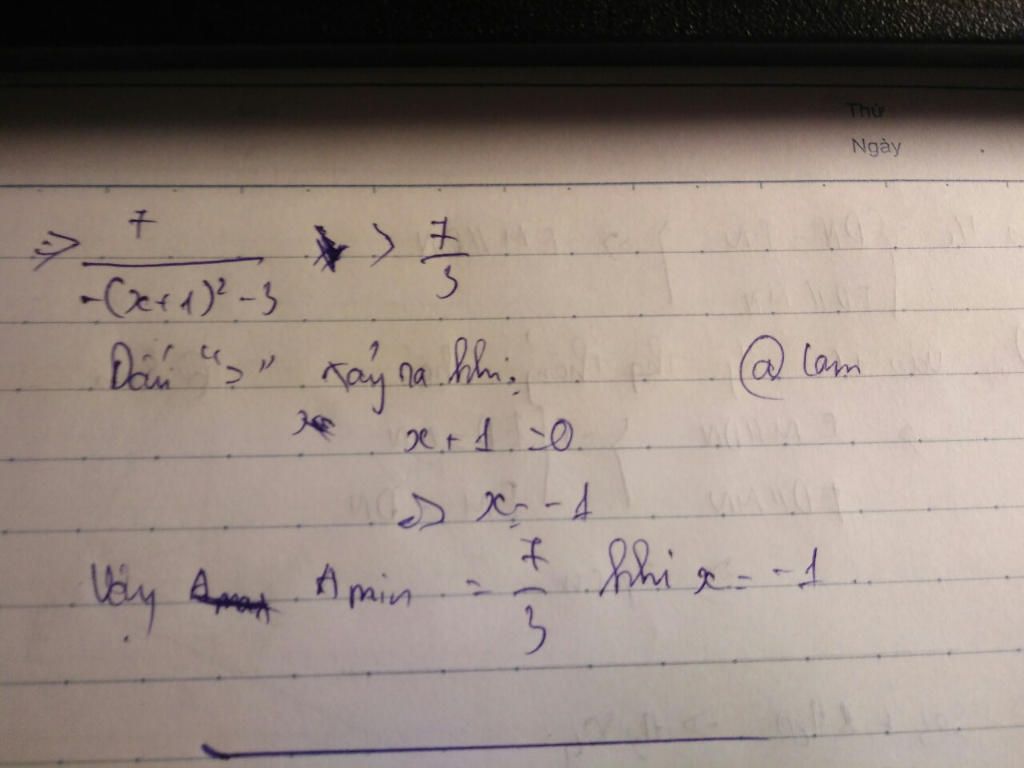 Thứ
Ngày
=> 7/(-(x+1)² - 3) > 7/3
Dấu ">" xảy ra khi:
@ lam
x + 1 = 0
=> x = -1
Vậy A min = 7/3 khi x = -1